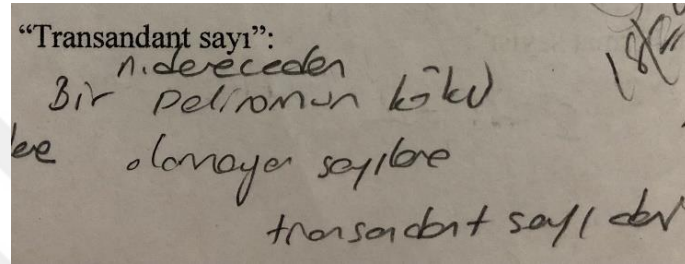 “Transandant sayı”:
n. dereceden
Bir polinomun kökü
olamayan sayılara
transandant sayı denir